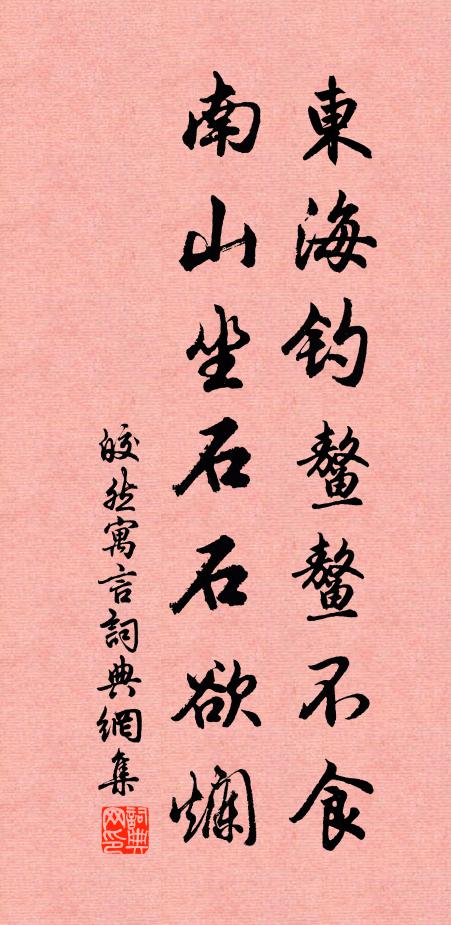 東海釣鼇鼇不食
南山坐石石欲爛
皎然寓言詞典網集
詞典网印